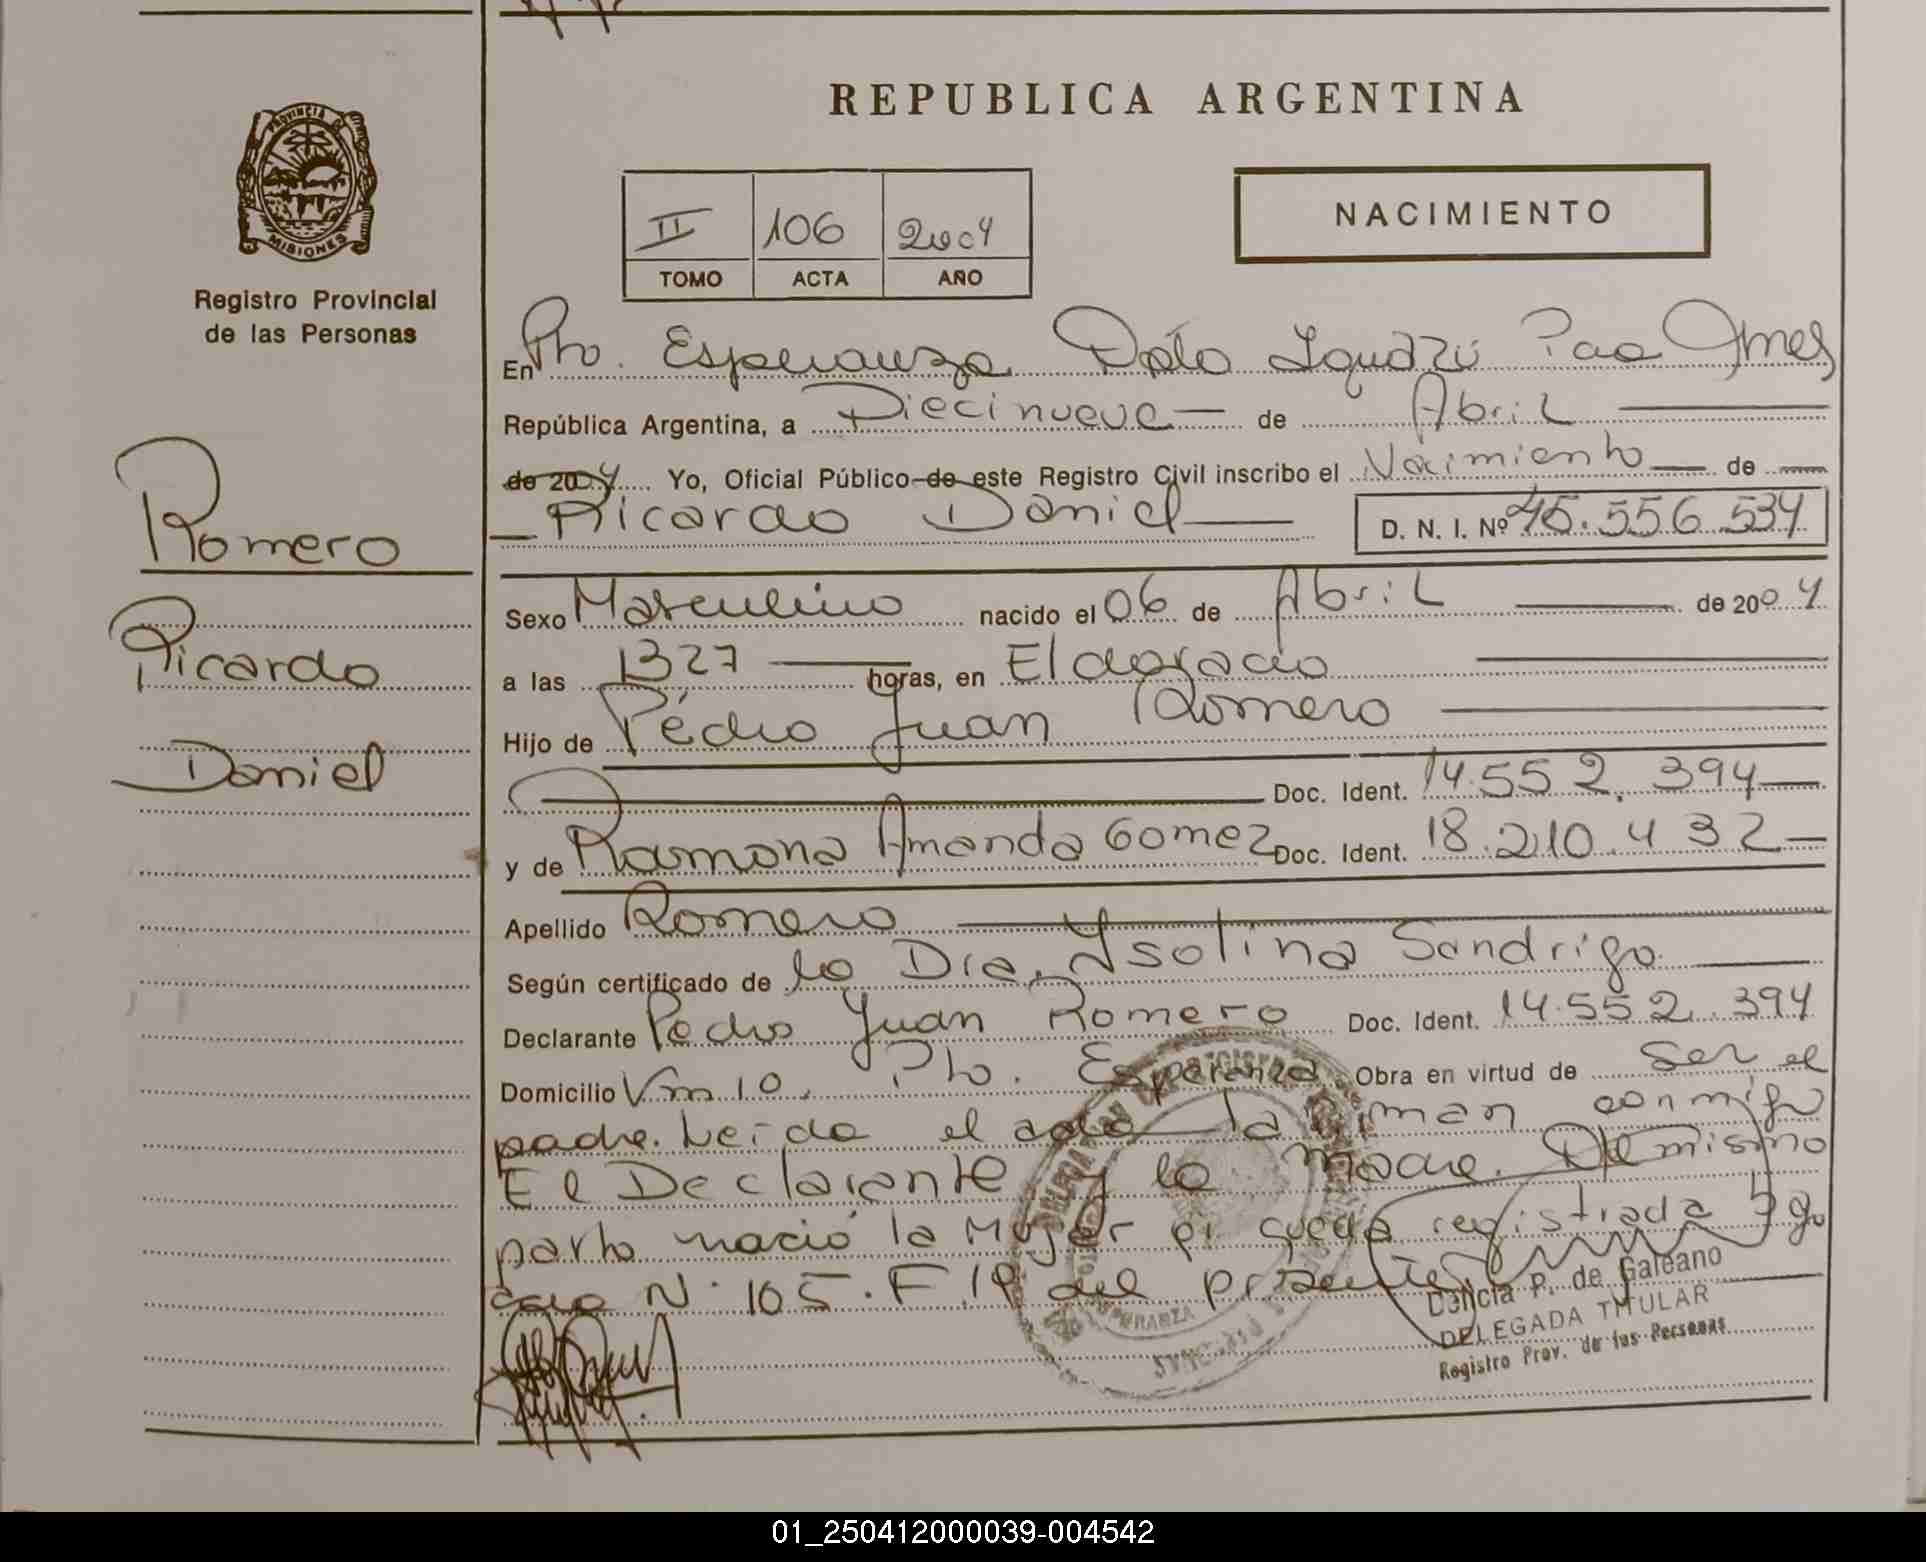 REPUBLICA ARGENTINA
PROVINCIA DE
MISIONES
Registro Provincial
de las Personas
II 106 2004
TOMO ACTA AÑO
NACIMIENTO
En Pto. Esperanza Dpto Iguazú Pcia Mnes
República Argentina, a Diecinueve de Abril
de 2004 Yo, Oficial Público de este Registro Civil inscribo el Nacimiento de
Ricardo Daniel D. N. I. Nº 45.556.534
Romero
Ricardo
Daniel
Sexo Masculino nacido el 06 de Abril de 2004
a las 1327 horas, en Eldorado
Hijo de Pedro Juan Romero
Doc. Ident. 14.552.394
y de Ramona Amanda Gomez Doc. Ident. 18.210.432
Apellido Romero
Según certificado de la Dra. Ysolina Sandrigo
Declarante Pedro Juan Romero Doc. Ident. 14.552.394
Domicilio Km 10. Pto. Esperanza Obra en virtud de ser el
padre. Leída el acta la firman conmigo
El Declarante y la madre. Del mismo
parto nació la mujer q' queda registrada bajo
acta Nº 105. F. 19 del presente
P. de Galeano
DELEGADA TITULAR
Registro Prov. de las Personas
01_250412000039-004542